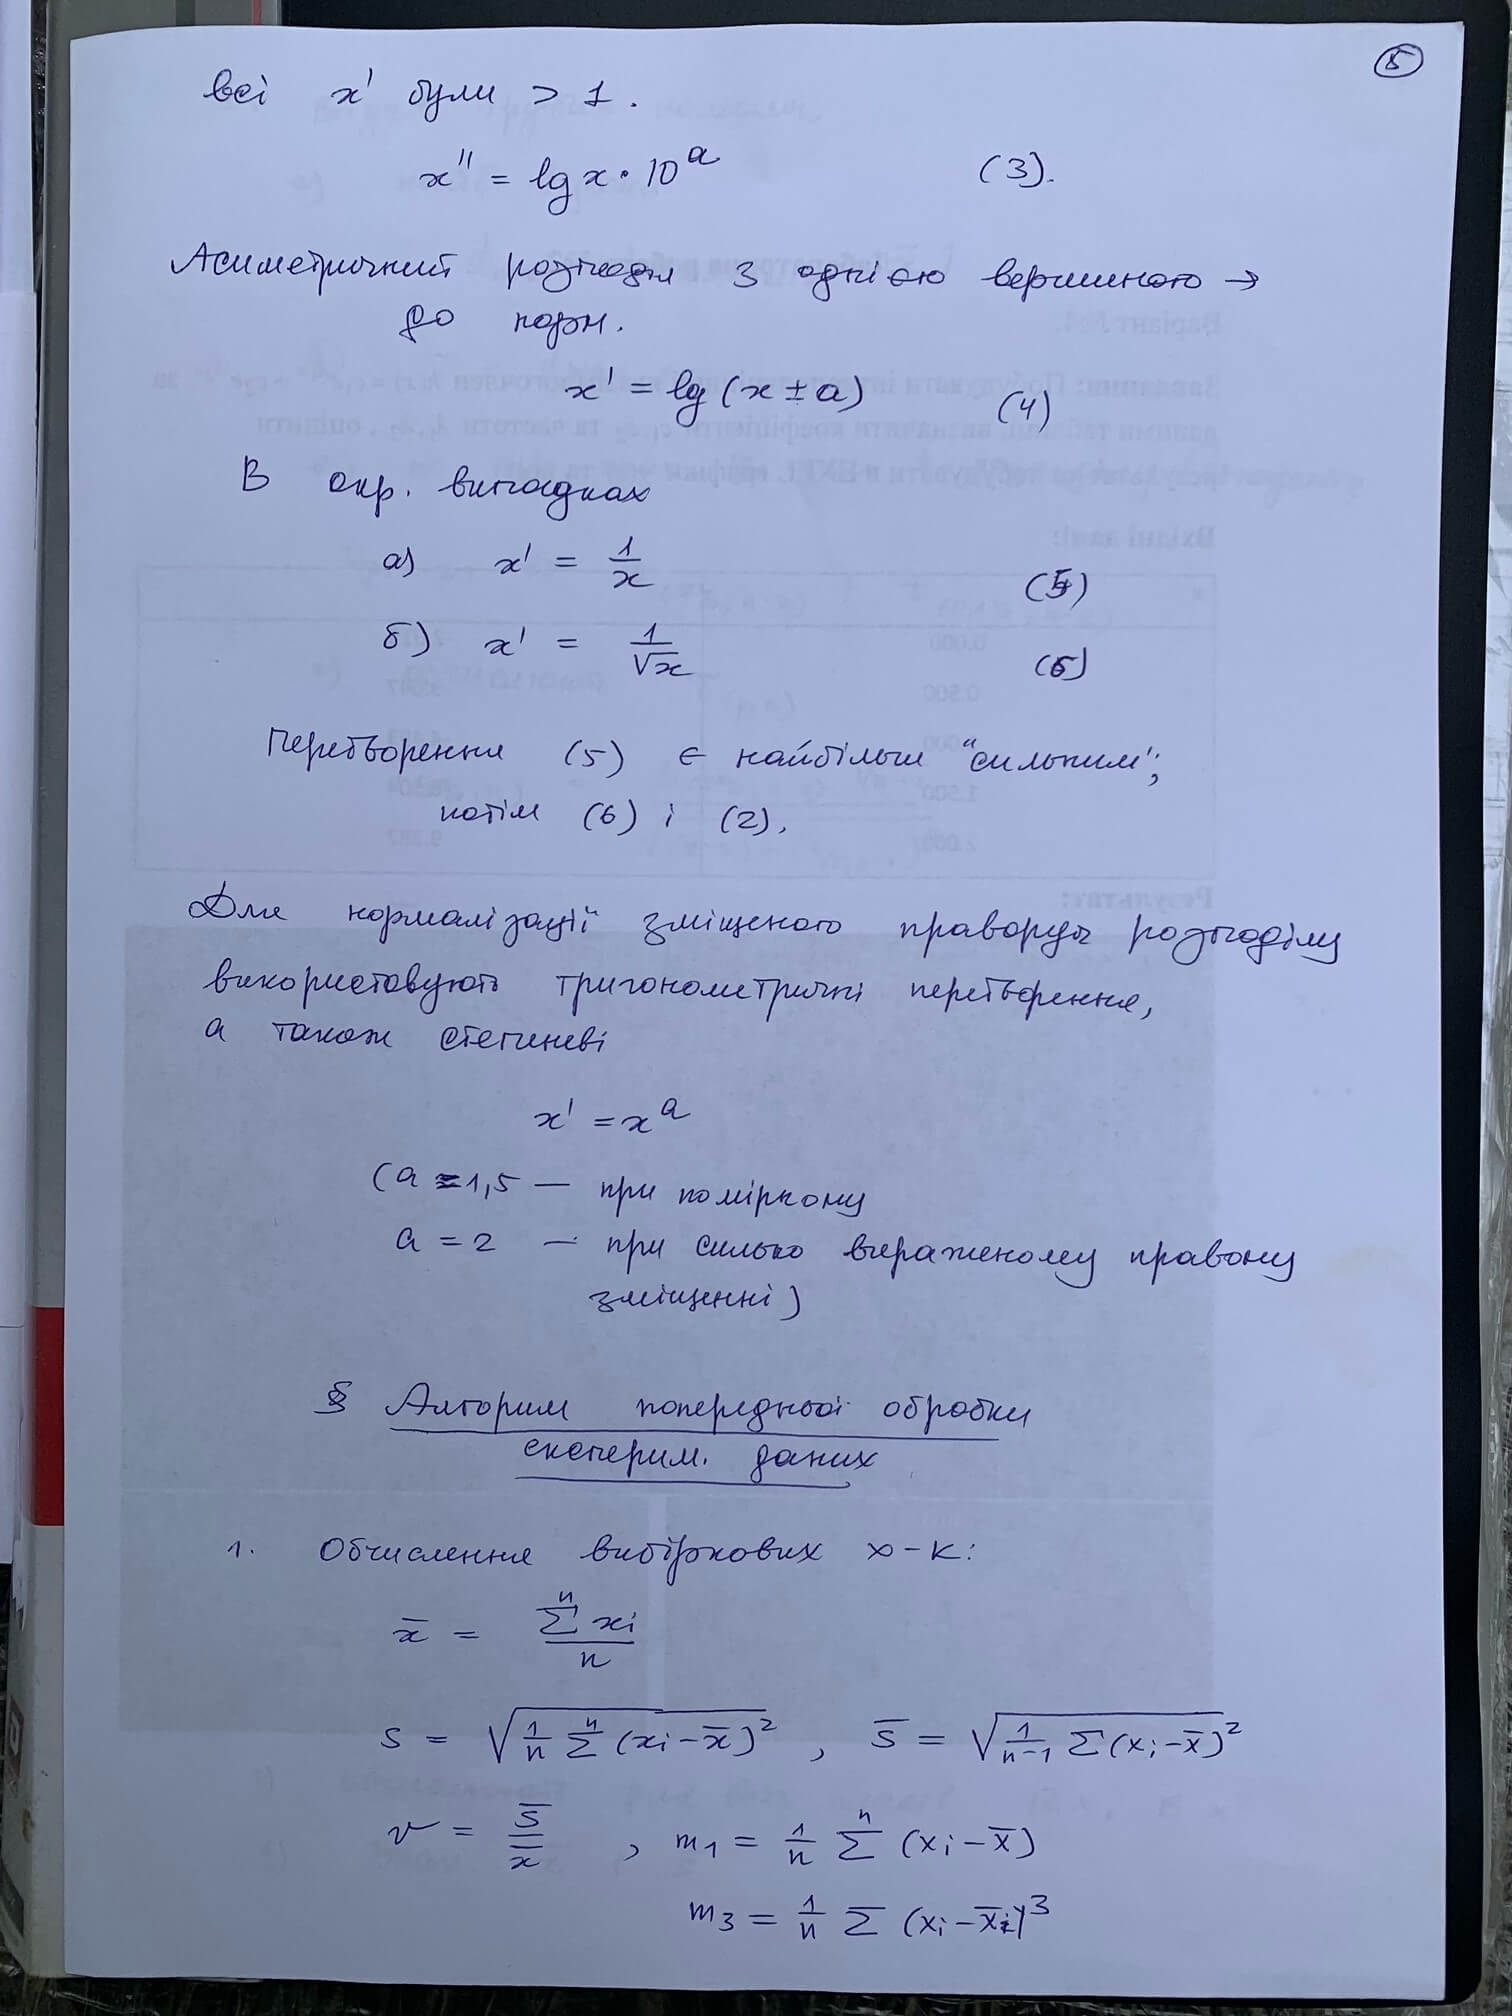 5
всі x' були > 1.
x'' = lg x · 10^a (3).
Асиметричний розподіл з однією вершиною →
до норм.
x' = lg (x ± a) (4)
В окр. випадках
а) x' = 1/x (5)
б) x' = 1/√x (6)
Перетворення (5) є найбільш "сильним";
потім (6) і (2).
Для нормалізації зміщеного праворуч розподілу
використовують тригонометричні перетворення,
а також степеневі
x' = x^a
(a = 1,5 — при помірному
a = 2 — при силько вираженому правому
зміщенні)
§ Алгорим попередньої обробки
експерим. даних
1. Обчислення вибіркових х-к:
x̄ = Σ^n xi / n
s = √(1/n Σ^n (xi − x̄)²) , s̄ = √(1/(n−1) Σ (xi − x̄)²)
v = s̄ / x̄ , m1 = 1/n Σ^n (xi − x̄)
m3 = 1/n Σ (xi − x̄i)³